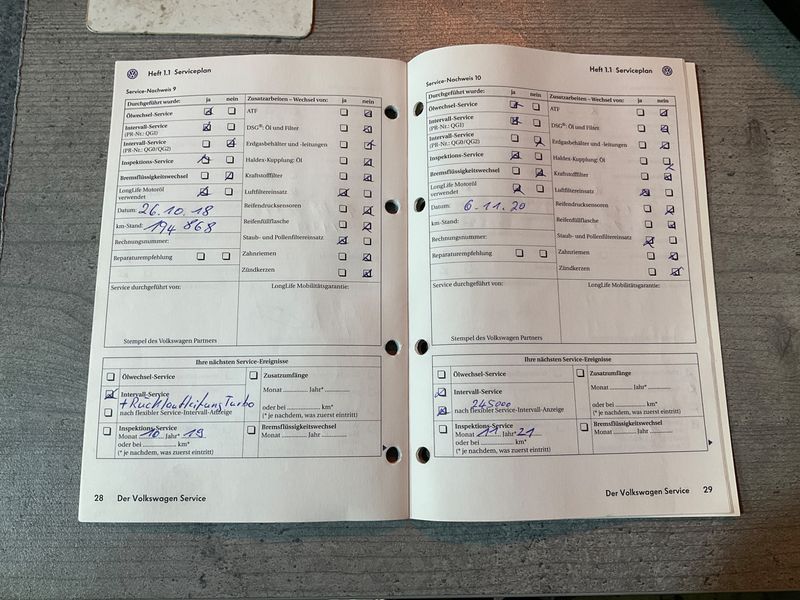 Heft 1.1 Serviceplan
Service-Nachweis 9
Durchgeführt wurde: ja nein
Ölwechsel-Service
Intervall-Service
(PR-Nr.: QGI)
Intervall-Service
(PR-Nr.: QG0/QG2)
Inspektions-Service
Bremsflüssigkeitswechsel
LongLife Motoröl
verwendet
Datum: 26.10.18
km-Stand: 194 868
Rechnungsnummer:
Reparaturempfehlung
Zusatzarbeiten – Wechsel von: ja nein
ATF
DSG®: Öl und Filter
Erdgasbehälter und -leitungen
Haldex-Kupplung: Öl
Kraftstofffilter
Luftfiltereinsatz
Reifendrucksensoren
Reifenfüllflasche
Staub- und Pollenfiltereinsatz
Zahnriemen
Zündkerzen
Service durchgeführt von:
LongLife Mobilitätsgarantie:
Stempel des Volkswagen Partners
Ihre nächsten Service-Ereignisse
Ölwechsel-Service
Intervall-Service
+ Rücklaufleitung Turbo
nach flexibler Service-Intervall-Anzeige
Inspektions-Service
Monat 10 Jahr* 19
oder bei km*
(* je nachdem, was zuerst eintritt)
Zusatzumfänge
Monat Jahr*
oder bei km*
(* je nachdem, was zuerst eintritt)
Bremsflüssigkeitswechsel
Monat Jahr
28 Der Volkswagen Service
Heft 1.1 Serviceplan
Service-Nachweis 10
Durchgeführt wurde: ja nein
Ölwechsel-Service
Intervall-Service
(PR-Nr.: QGI)
Intervall-Service
(PR-Nr.: QG0/QG2)
Inspektions-Service
Bremsflüssigkeitswechsel
LongLife Motoröl
verwendet
Datum: 6.11.20
km-Stand:
Rechnungsnummer:
Reparaturempfehlung
Zusatzarbeiten – Wechsel von: ja nein
ATF
DSG®: Öl und Filter
Erdgasbehälter und -leitungen
Haldex-Kupplung: Öl
Kraftstofffilter
Luftfiltereinsatz
Reifendrucksensoren
Reifenfüllflasche
Staub- und Pollenfiltereinsatz
Zahnriemen
Zündkerzen
Service durchgeführt von:
LongLife Mobilitätsgarantie:
Stempel des Volkswagen Partners
Ihre nächsten Service-Ereignisse
Ölwechsel-Service
Intervall-Service
245000
nach flexibler Service-Intervall-Anzeige
Inspektions-Service
Monat 11 Jahr* 21
oder bei km*
(* je nachdem, was zuerst eintritt)
Zusatzumfänge
Monat Jahr*
oder bei km*
(* je nachdem, was zuerst eintritt)
Bremsflüssigkeitswechsel
Monat Jahr
Der Volkswagen Service 29